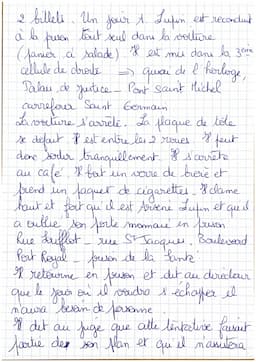 2 billets. Un jour A. Lupin est reconduit
à la prison tout seul dans la voiture
(panier à salade). Il est mis dans la 3ème
cellule de droite ⇒ quai de l'horloge,
Palais de justice - Pont Saint Michel
carrefour Saint Germain
La voiture s'arrête. La plaque de tôle
se défait. Il est entre les 2 roues. Il peut
donc sortir tranquillement. Il s'arrête
au café. Il boit un verre de bière et
prend un paquet de cigarettes. Il clame
haut et fort qu'il est Arsène Lupin et qu'il
a oublié son porte monnaie en prison
Rue Soufflot - rue St Jacques, Boulevard
Port Royal - prison de la Santé
Il retourne en prison et dit au directeur
que le jour où il voudra s'échapper il
n'aura besoin de personne.
Il dit au juge que cette tentative faisait
partie de son plan et qu'il n'assistera